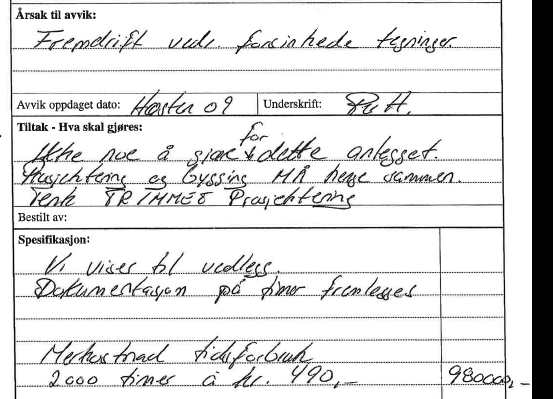 Årsak til avvik:
Fremdrift vedr. forsinkede tegninger.
Avvik oppdaget dato: Høsten 09 Underskrift:
Tiltak - Hva skal gjøres:
Ikke noe å gjøre for dette anlegget.
Prosjektering og bygging MÅ henge sammen.
Tenk TRIMMET Prosjektering
Bestilt av:
Spesifikasjon:
Vi viser til vedlegg.
Dokumentasjon på timer fremlegges
Merkostnad tidsforbruk
2000 timer á kr. 490,- 980000,-